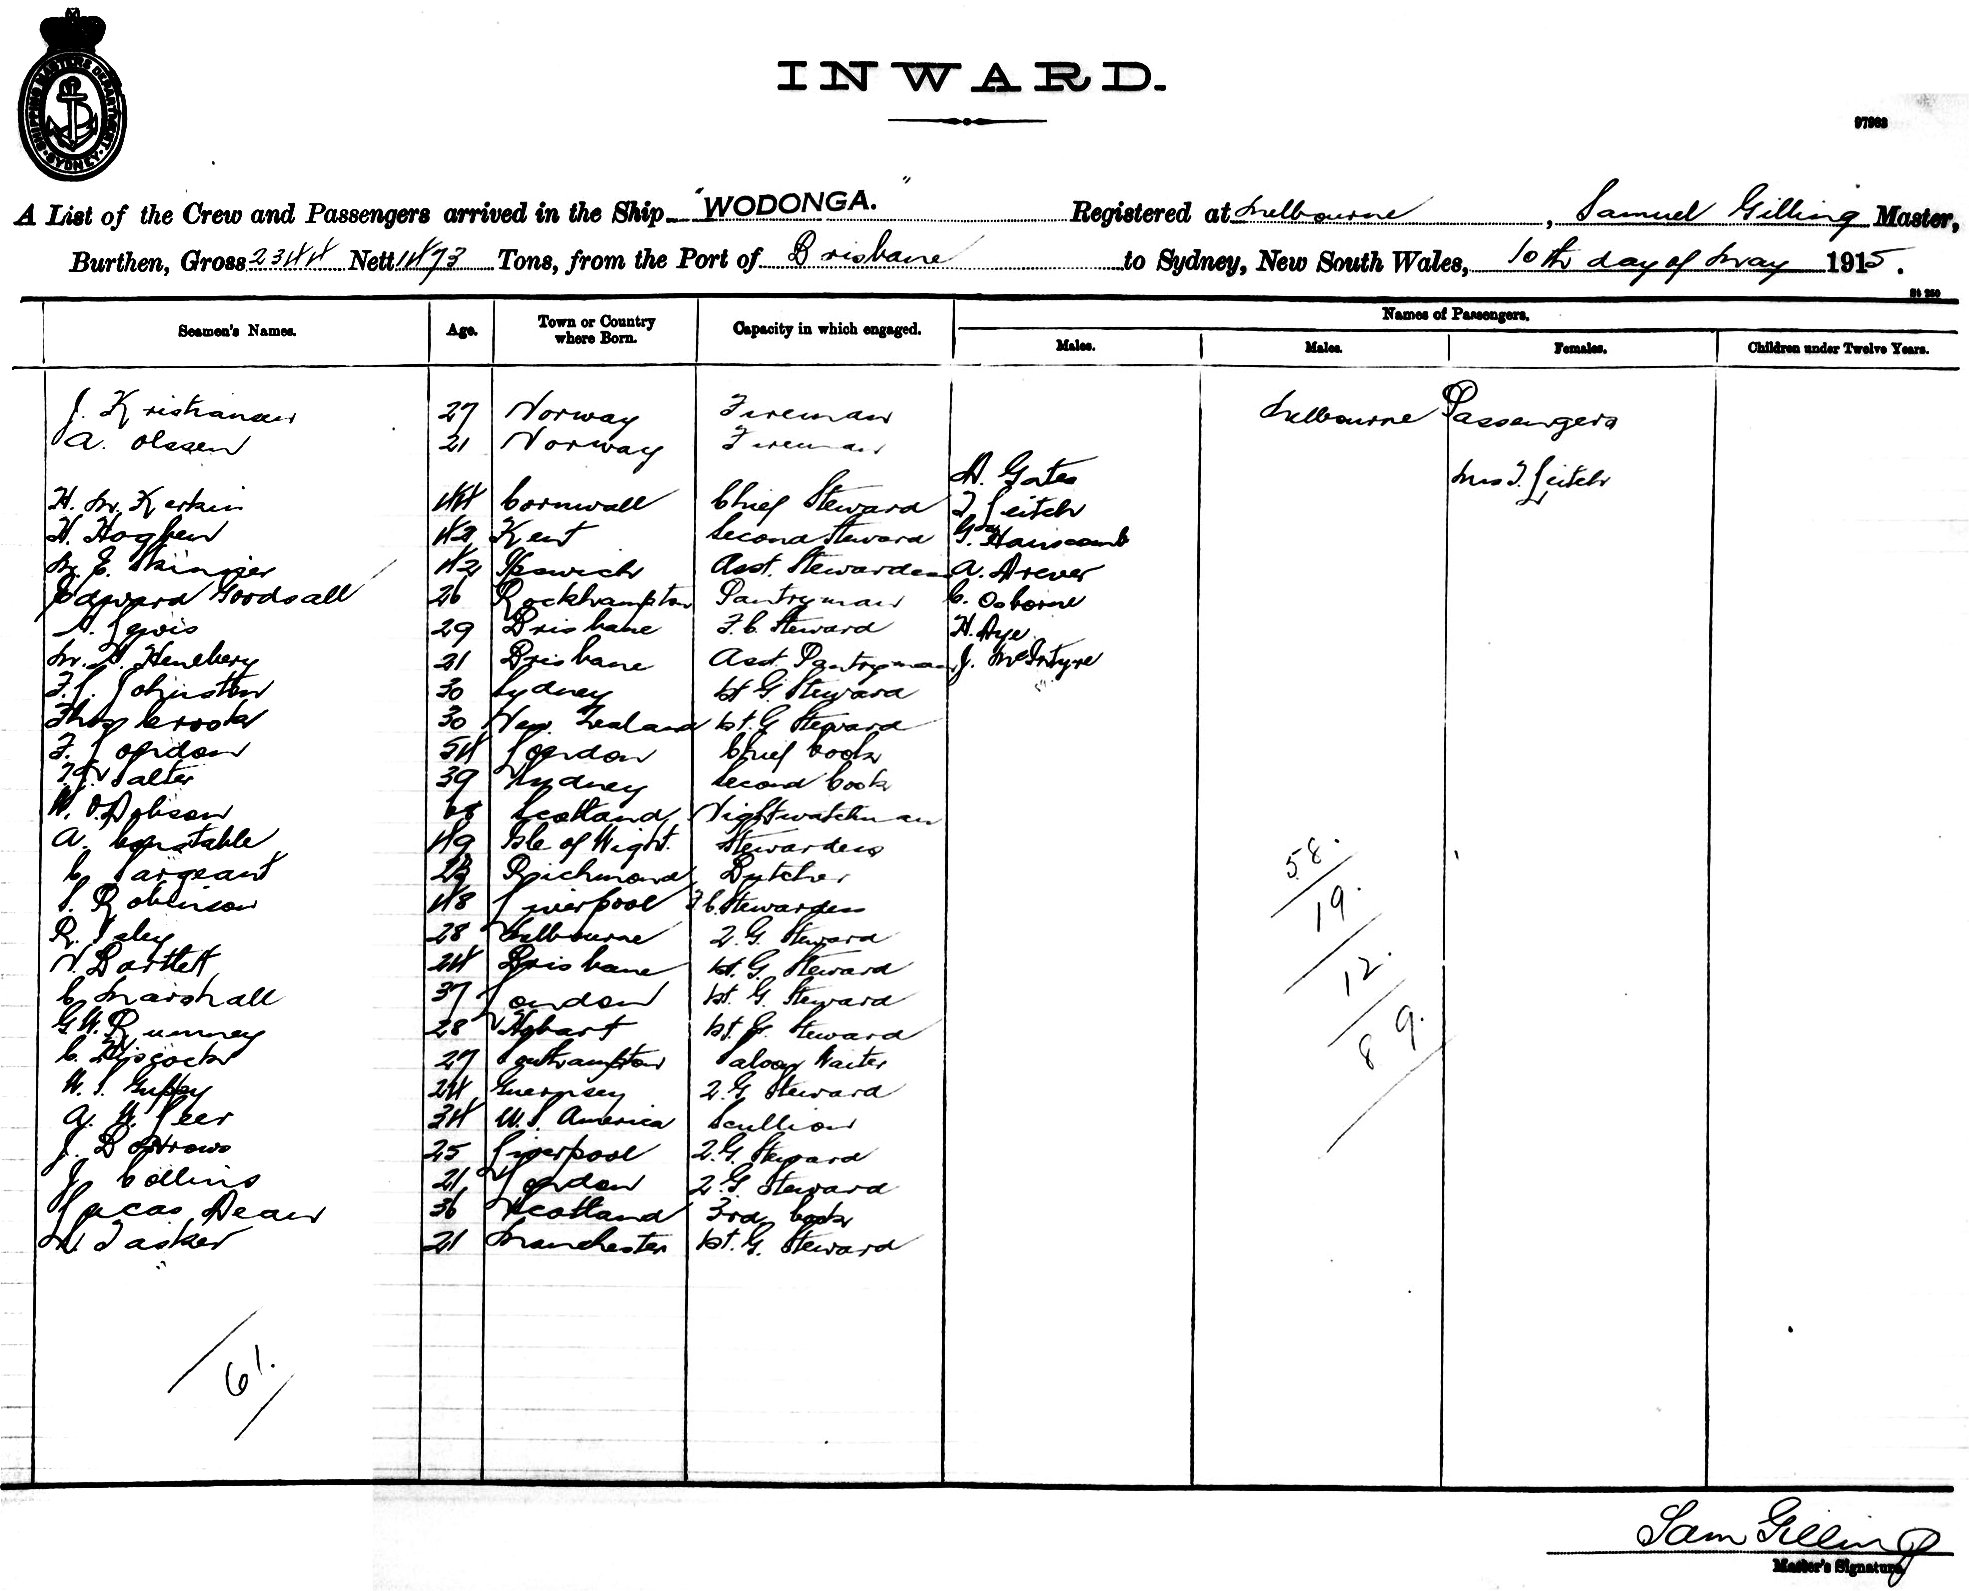 SHIPPING MASTERS DEPARTMENT SYDNEY
INWARD.
97963
A List of the Crew and Passengers arrived in the Ship "WODONGA." Registered at Melbourne, Samuel Gilling Master,
Burthen, Gross 2344 Nett 1473 Tons, from the Port of Brisbane to Sydney, New South Wales, 10th day of May 1915.
Seamen's Names. Age. Town or Country where Born. Capacity in which engaged. Names of Passengers.
Males. Males. Females. Children under Twelve Years.
J. Kristiansen 27 Norway Fireman Melbourne Passengers
A. Olssen 21 Norway Fireman
A. Gates Mrs T. Leitch
H. M. Kerkin 44 Cornwall Chief Steward T. Leitch
H. Hogben 42 Kent Second Steward G. Hanscomb
M. E. Skinner 42 Ipswich Asst. Stewardess A. Drever
Edward Goodsall 26 Rockhampton Pantryman C. Osborne
A. Lewis 29 Brisbane F.C. Steward H. Dye
M. Henebery 21 Brisbane Asst. Pantryman J. McIntyre
F. L. Johnston 30 Sydney 1st G. Steward
Thos Crook 30 New Zealand 1st. G. Steward
F. London 54 London Chief Cook
Salter 39 Sydney Second Cook
W. Dobson 68 Scotland Nightwatchman
A. Constable 49 Isle of Wight. Stewardess
C. Sargeant 23 Richmond Butcher
S. Robinson 48 Liverpool F.C. Stewardess
R. Isley 28 Melbourne 2. G. Steward
V. Bartlett 24 Brisbane 1st. G. Steward
C. Marshall 37 London 1st. G. Steward
G. W. Rumney 28 Hobart 1st G. Steward
C. Hiscock 27 Southampton Saloon Waiter
W. S. Guppy 24 Guernsey 2. G. Steward
A. W. Leer 34 U.S. America Scullion
J. Borrows 25 Liverpool 2. G. Steward
J. Collins 21 London 2. G. Steward
Lucas Dean 36 Scotland 3rd Cook
M. Tasker 21 Manchester 1st. G. Steward
58.
19.
12.
89.
61.
Sam Gilling
Master's Signature.